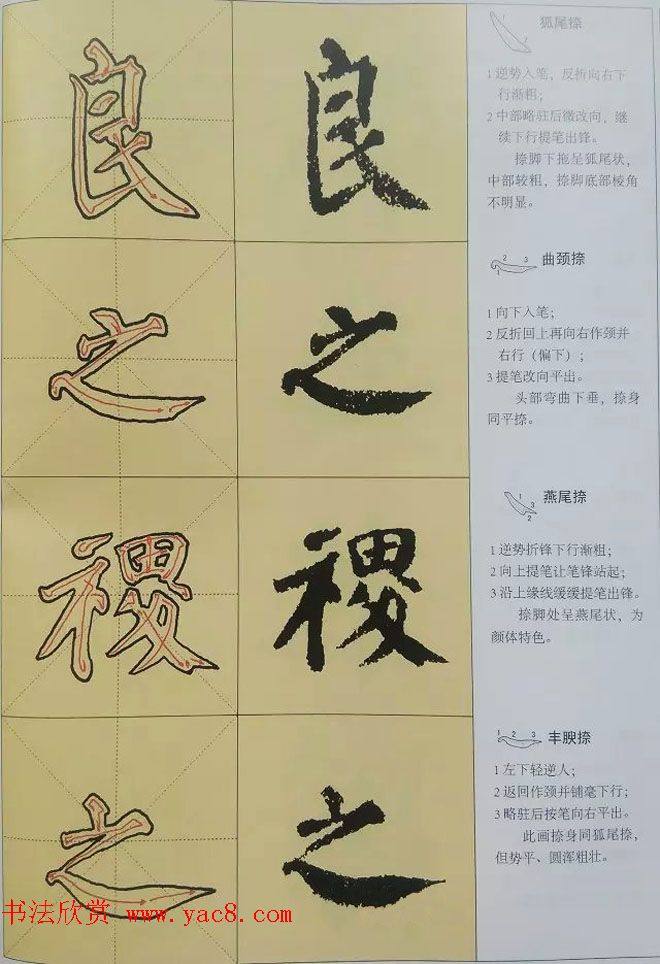 良 良
狐尾捺
1 逆势入笔，反折向右下
行渐粗；
2 中部略驻后微改向，继
续下行提笔出锋。
捺脚下拖呈狐尾状，
中部较粗，捺脚底部棱角
不明显。
之 之
曲颈捺
1 向下入笔；
2 反折回上再向右作颈并
右行（偏下）；
3 提笔改向平出。
头部弯曲下垂，捺身
同平捺。
稷 稷
燕尾捺
1 逆势折锋下行渐粗；
2 向上提笔让笔锋站起；
3 沿上缘线缓缓提笔出锋。
捺脚处呈燕尾状，为
颜体特色。
之 之
丰腴捺
1 左下轻逆人；
2 返回作颈并铺毫下行；
3 略驻后按笔向右平出。
此画捺身同狐尾捺，
但势平、圆浑粗壮。
书法欣赏 www.yac8.com